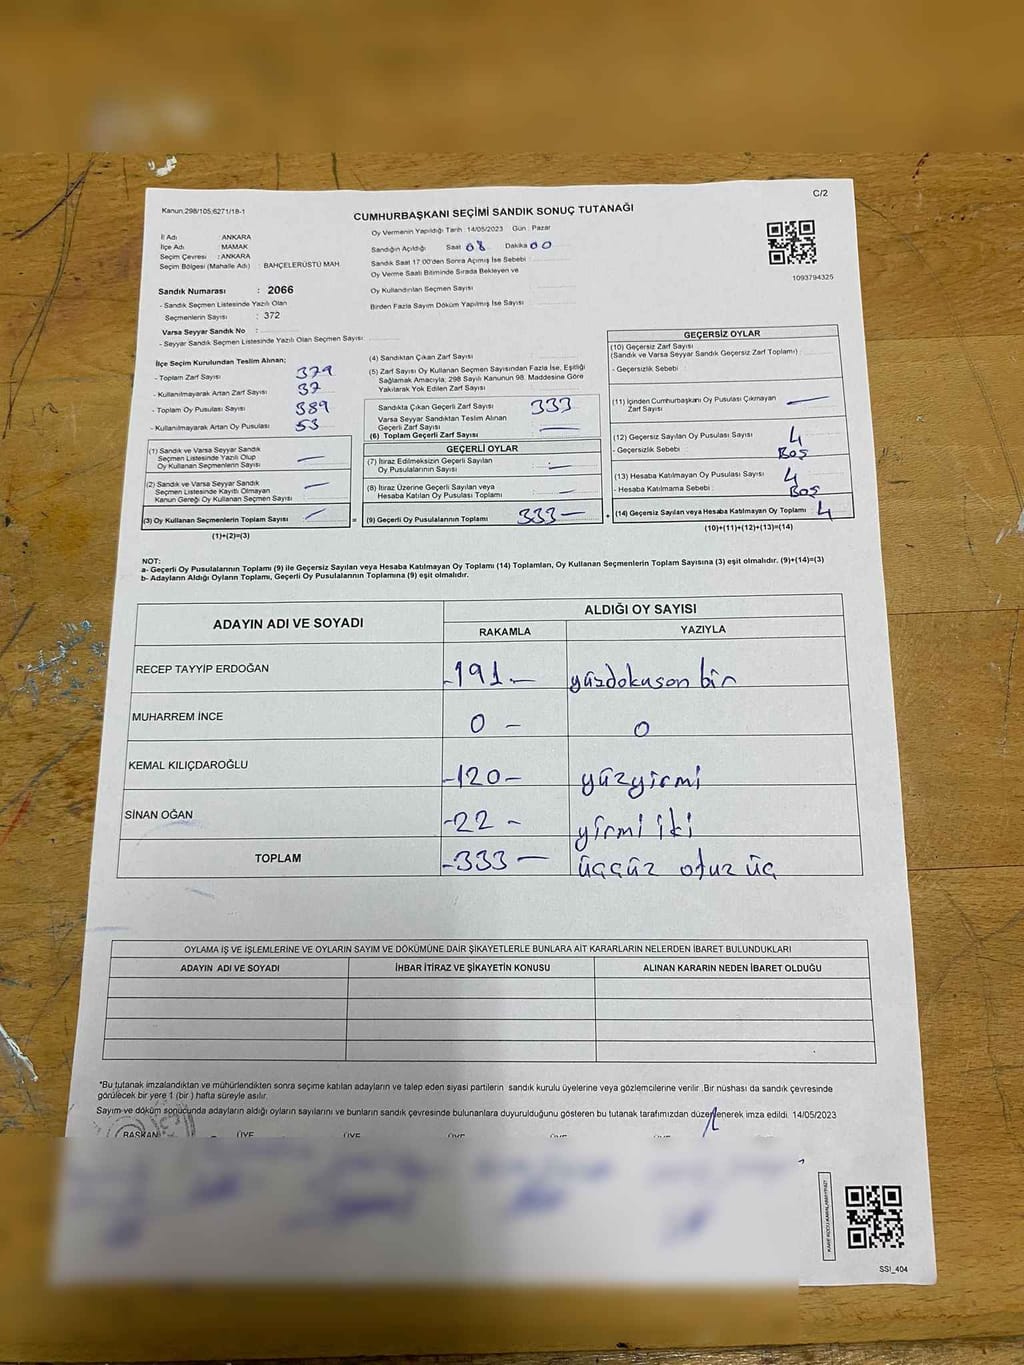 Kanun:298/105;6271/18-1
C/2
CUMHURBAŞKANI SEÇİMİ SANDIK SONUÇ TUTANAĞI
İl Adı : ANKARA
İlçe Adı : MAMAK
Seçim Çevresi : ANKARA
Seçim Bölgesi (Mahalle Adı) : BAHÇELERÜSTÜ MAH.
Sandık Numarası : 2066
- Sandık Seçmen Listesinde Yazılı Olan
Seçmenlerin Sayısı : 372
Varsa Seyyar Sandık No :
- Seyyar Sandık Seçmen Listesinde Yazılı Olan Seçmen Sayısı:
Oy Vermenin Yapıldığı Tarih :14/05/2023 Gün : Pazar
Sandığın Açıldığı Saat 08 Dakika 00
Sandık Saat 17:00'den Sonra Açılmış İse Sebebi :
Oy Verme Saati Bitiminde Sırada Bekleyen ve
Oy Kullandırılan Seçmen Sayısı :
Birden Fazla Sayım Döküm Yapılmış İse Sayısı :
1093794325
İlçe Seçim Kurulundan Teslim Alınan;
- Toplam Zarf Sayısı 379
- Kullanılmayarak Artan Zarf Sayısı 37
- Toplam Oy Pusulası Sayısı 389
- Kullanılmayarak Artan Oy Pusulası 53
(1) Sandık ve Varsa Seyyar Sandık
Seçmen Listesinde Yazılı Olup
Oy Kullanan Seçmenlerin Sayısı —
(2) Sandık ve Varsa Seyyar Sandık
Seçmen Listesinde Kayıtlı Olmayan
Kanun Gereği Oy Kullanan Seçmen Sayısı —
(3) Oy Kullanan Seçmenlerin Toplam Sayısı —
(1)+(2)=(3)
(4) Sandıktan Çıkan Zarf Sayısı
(5) Zarf Sayısı Oy Kullanan Seçmen Sayısından Fazla İse, Eşitliği
Sağlamak Amacıyla; 298 Sayılı Kanunun 98. Maddesine Göre
Yakılarak Yok Edilen Zarf Sayısı
Sandıkta Çıkan Geçerli Zarf Sayısı 333
Varsa Seyyar Sandıktan Teslim Alınan
Geçerli Zarf Sayısı —
(6) Toplam Geçerli Zarf Sayısı
GEÇERLİ OYLAR
(7) İtiraz Edilmeksizin Geçerli Sayılan
Oy Pusulalarının Sayısı : —
(8) İtiraz Üzerine Geçerli Sayılan veya
Hesaba Katılan Oy Pusulası Toplamı —
= (9) Geçerli Oy Pusulalarının Toplamı 333 —
GEÇERSİZ OYLAR
(10) Geçersiz Zarf Sayısı
(Sandık ve Varsa Seyyar Sandık Geçersiz Zarf Toplamı) :
- Geçersizlik Sebebi :
(11) İçinden Cumhurbaşkanı Oy Pusulası Çıkmayan
Zarf Sayısı —
(12) Geçersiz Sayılan Oy Pusulası Sayısı 4
- Geçersizlik Sebebi : Boş
(13) Hesaba Katılmayan Oy Pusulası Sayısı 4
- Hesaba Katılmama Sebebi : Boş
+ (14) Geçersiz Sayılan veya Hesaba Katılmayan Oy Toplamı 4
(10)+(11)+(12)+(13)=(14)
NOT:
a- Geçerli Oy Pusulalarının Toplamı (9) ile Geçersiz Sayılan veya Hesaba Katılmayan Oy Toplamı (14) Toplamları, Oy Kullanan Seçmenlerin Toplam Sayısına (3) eşit olmalıdır. (9)+(14)=(3)
b- Adayların Aldığı Oyların Toplamı, Geçerli Oy Pusulalarının Toplamına (9) eşit olmalıdır.
ADAYIN ADI VE SOYADI
ALDIĞI OY SAYISI
RAKAMLA YAZIYLA
RECEP TAYYİP ERDOĞAN -191.- yüzdokuson bir
MUHARREM İNCE 0 - 0
KEMAL KILIÇDAROĞLU -120- yüzyirmi
SİNAN OĞAN -22 - yirmi iki
TOPLAM -333 — üççüz otuz üç
OYLAMA İŞ VE İŞLEMLERİNE VE OYLARIN SAYIM VE DÖKÜMÜNE DAİR ŞİKAYETLERLE BUNLARA AİT KARARLARIN NELERDEN İBARET BULUNDUKLARI
ADAYIN ADI VE SOYADI İHBAR İTİRAZ VE ŞİKAYETİN KONUSU ALINAN KARARIN NEDEN İBARET OLDUĞU
*Bu tutanak imzalandıktan ve mühürlendikten sonra seçime katılan adayların ve talep eden siyasi partilerin sandık kurulu üyelerine veya gözlemcilerine verilir .Bir nüshası da sandık çevresinde
görülecek bir yere 1 (bir ) hafta süreyle asılır.
Sayım ve döküm sonucunda adayların aldığı oyların sayılarını ve bunların sandık çevresinde bulunanlara duyurulduğunu gösteren bu tutanak tarafımızdan düzenlenerek imza edildi. 14/05/2023
BAŞKAN ÜYE ÜYE ÜYE ÜYE ÜYE
SSI_404